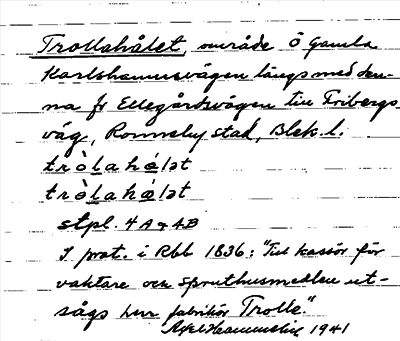 Trollahålet, område Ö Gamla
Karlshamnsvägen längs med den-
na fr Ellegårdsvägen till Fribergs
väg, Ronneby stad, Blek. l.
tròlahá̱lət
tròlahǿlət
stpl. 4A & 4B
I prot. i Rbb 1836: "Till kassör för
vaktare och spruthusmedlen ut-
sågs herr fabrikör Trolle."
Axel 1941